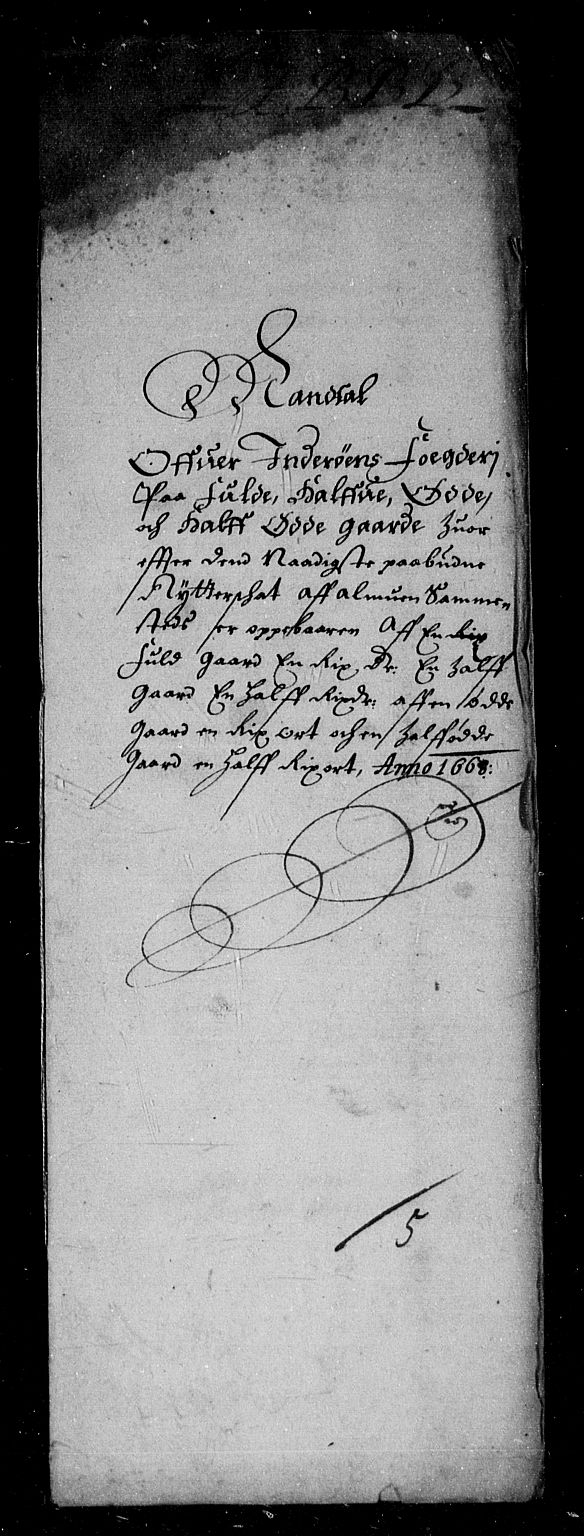 Mandtal
Offuer Inderøens Foegderj
Paa fulde, Halffue, Øðde,
och Halff Øðde gaarde huor
effter dend Naadigste paabudne
Rytterschat aff almuen Sammen
steds er oppebaaren Aff En Rix
fuld gaard En Rix Dr: En halff
gaard En halff Rixdr: aff en ødde
gaard en Rix ort och en halff ødde
gaard en halff Rixort, Anno 1668:
5